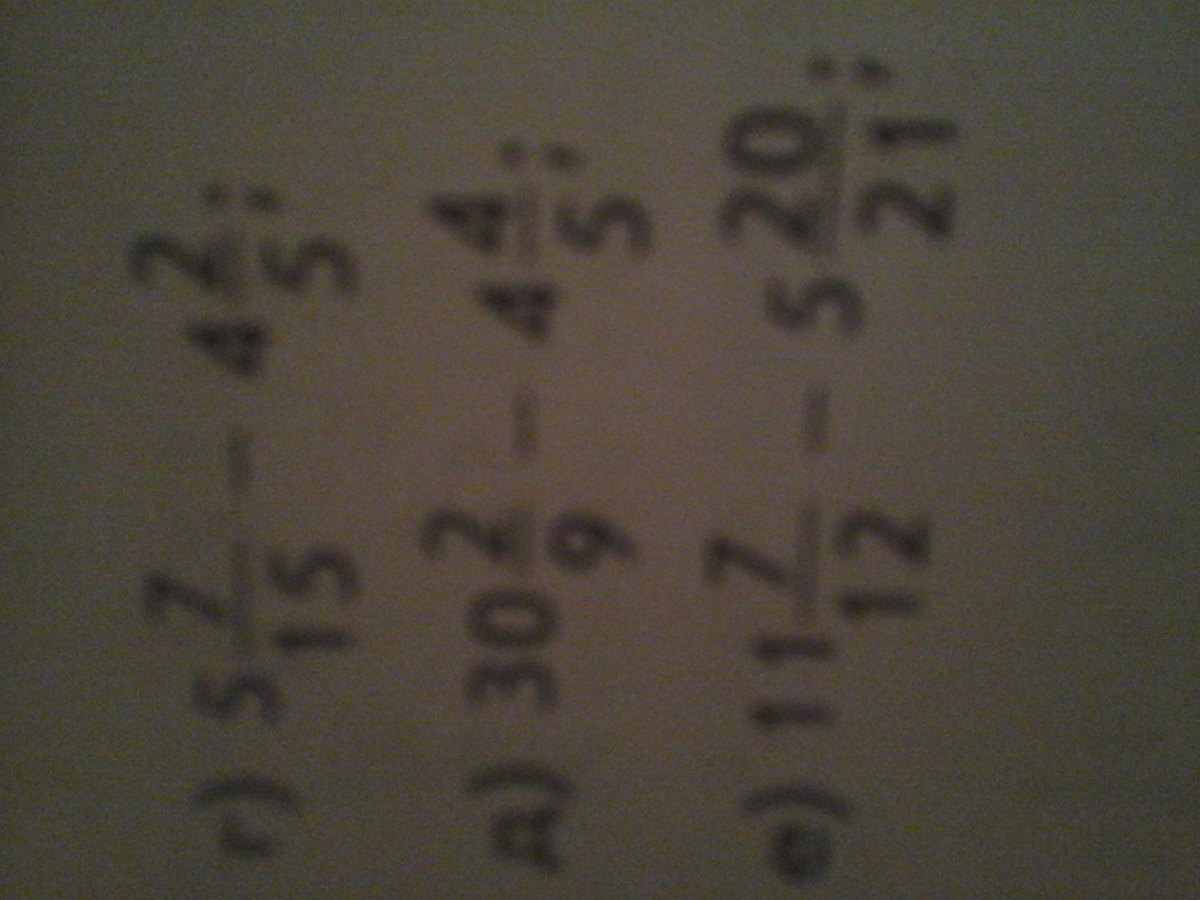 г) 5 7/15 − 4 2/5;
д) 30 2/9 − 4 4/5;
е) 11 7/12 − 5 20/21;